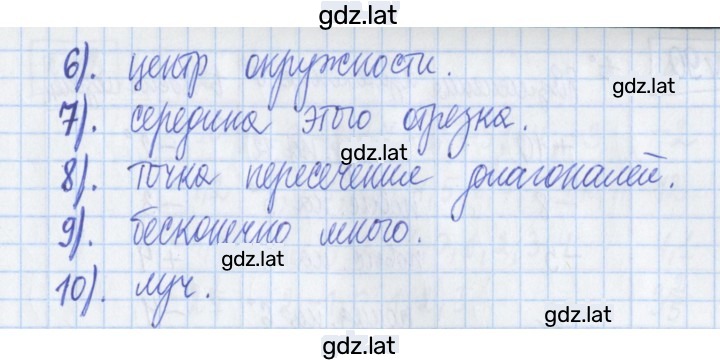 gdz.lat
6). центр окружности.
gdz.lat
7). середина этого отрезка.
gdz.lat
8). точка пересечения диагоналей.
9). бесконечно много.
gdz.lat
10). луч.
gdz.lat
gdz.lat